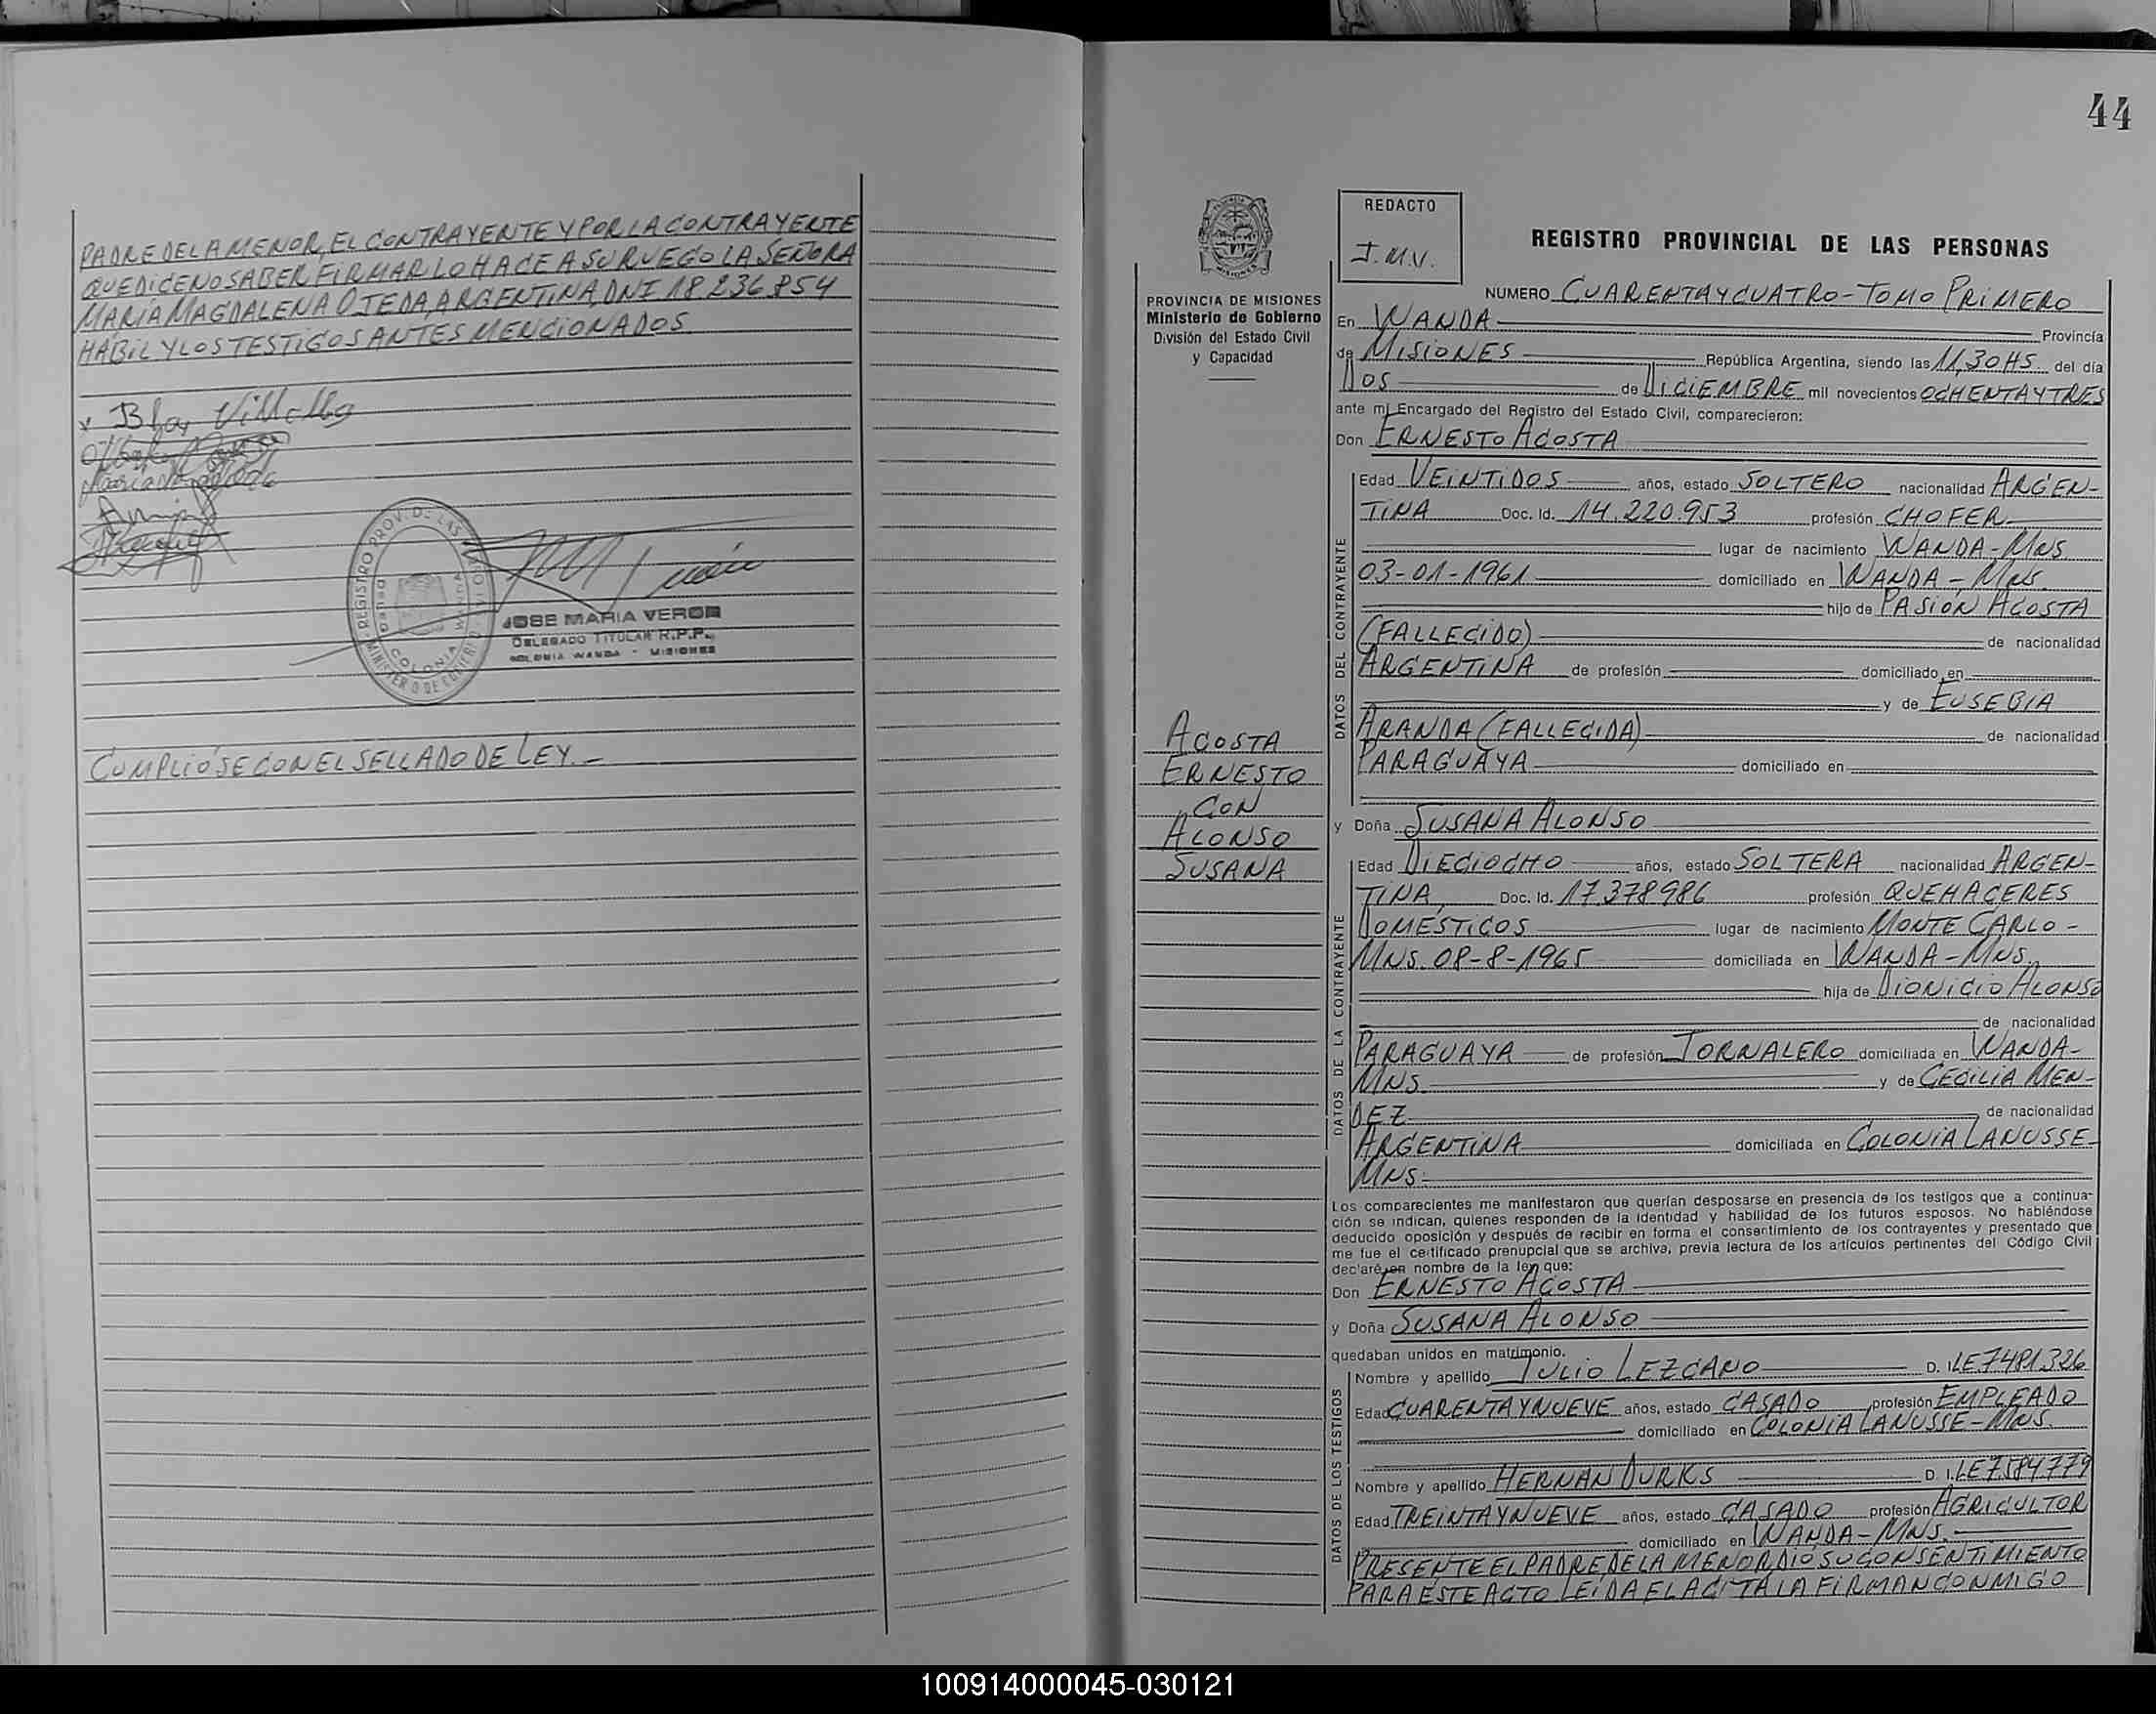 PADRE DE LA MENOR, EL CONTRAYENTE Y POR LA CONTRAYENTE
QUE DICE NO SABER FIRMAR LO HACE A SU RUEGO LA SEÑORA
MARÍA MAGDALENA OJEDA, ARGENTINA, DNI 18 236 854
HÁBIL Y LOS TESTIGOS ANTES MENCIONADOS
x Blas Villalba
REGISTRO PROV. DE LAS
COLONIA WANDA
MINISTERIO DE GOBIERNO
JOSE MARIA VERON
DELEGADO TITULAR R.P.P.
COLONIA WANDA - MISIONES
CUMPLIÓSE CON EL SELLADO DE LEY.-
44
PROVINCIA DE MISIONES
Ministerio de Gobierno
División del Estado Civil
y Capacidad
ACOSTA
ERNESTO
CON
ALONSO
SUSANA
REDACTO
J.M.V.
REGISTRO PROVINCIAL DE LAS PERSONAS
NUMERO CUARENTA Y CUATRO - TOMO PRIMERO
En WANDA Provincia
de MISIONES República Argentina, siendo las 11,30 HS del día
DOS de DICIEMBRE mil novecientos OCHENTA Y TRES
ante mí Encargado del Registro del Estado Civil, comparecieron:
Don ERNESTO ACOSTA
DATOS DEL CONTRAYENTE
Edad VEINTIDOS años, estado SOLTERO nacionalidad ARGEN-
TINA Doc. Id. 14.220.953 profesión CHOFER
lugar de nacimiento WANDA-MNS
03-01-1961 domiciliado en WANDA-MNS.
hijo de PASIÓN ACOSTA
(FALLECIDO) de nacionalidad
ARGENTINA de profesión domiciliado en
y de EUSEBIA
ARANDA (FALLECIDA) de nacionalidad
PARAGUAYA domiciliado en
y Doña SUSANA ALONSO
DATOS DE LA CONTRAYENTE
Edad DIECIOCHO años, estado SOLTERA nacionalidad ARGEN-
TINA, Doc. Id. 17.378986 profesión QUEHACERES
DOMÉSTICOS lugar de nacimiento MONTE CARLO-
MNS. 08-8-1965 domiciliada en WANDA-MNS.
hija de DIONICIO ALONSO
de nacionalidad
PARAGUAYA de profesión JORNALERO domiciliada en WANDA-
MNS. y de CECILIA MEN-
DEZ de nacionalidad
ARGENTINA domiciliada en COLONIA LANUSSE-
MNS.
Los comparecientes me manifestaron que querían desposarse en presencia de los testigos que a continua-
ción se indican, quienes responden de la identidad y habilidad de los futuros esposos. No habiéndose
deducido oposición y después de recibir en forma el consentimiento de los contrayentes y presentado que
me fue el certificado prenupcial que se archiva, previa lectura de los artículos pertinentes del Código Civil
declaré en nombre de la ley que:
Don ERNESTO ACOSTA
y Doña SUSANA ALONSO
quedaban unidos en matrimonio.
DATOS DE LOS TESTIGOS
Nombre y apellido JULIO LEZCANO D. I. LE 7481326
Edad CUARENTA Y NUEVE años, estado CASADO profesión EMPLEADO
domiciliado en COLONIA LANUSSE-MNS.
Nombre y apellido HERNAN DURKS D. I. LE 7584779
Edad TREINTA Y NUEVE años, estado CASADO profesión AGRICULTOR
domiciliado en WANDA-MNS.
PRESENTE EL PADRE DE LA MENOR DIÓ SU CONSENTIMIENTO
PARA ESTE ACTO LEÍDA EL ACTA LA FIRMAN CONMIGO
100914000045-030121